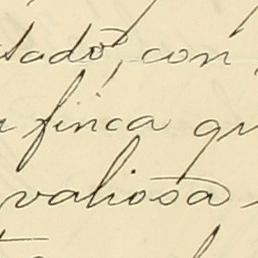 sado, con
finca qu
valiosa